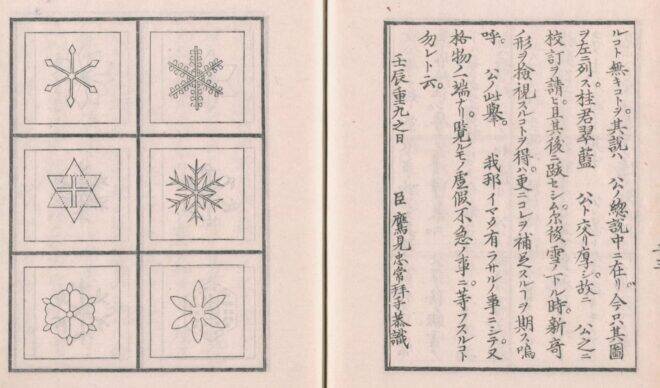 ルコト無キコトヲ。其説ハ　公ノ總説中ニ在リ今只其圖
ヲ左ニ列ス。桂君翠藍　公ト交リ厚シ。故ニ　公之ニ
校訂ヲ請ヒ。且其後ニ跋セシム。尓後雪ノ下ル時。新奇
ノ形ヲ撿視スルコトヲ得ハ。更ニコレヲ補足スルヿヲ期ス。嗚
呼。　公ノ此擧。　我邦イマタ有ラサルノ事ニシテ。又
格物ノ一端ナリ。覽ルモノ虚假不急ノ事ニ等フスルコト
勿レト云。
壬辰重九之日
臣 鷹見忠常拜手恭識